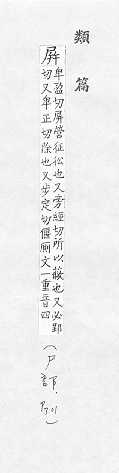 類篇
屏 卑盈切屏營征彸也又旁經切所以蔽也又必郢
切又卑正切除也又步定切偃厠文一重音四
(尸部.